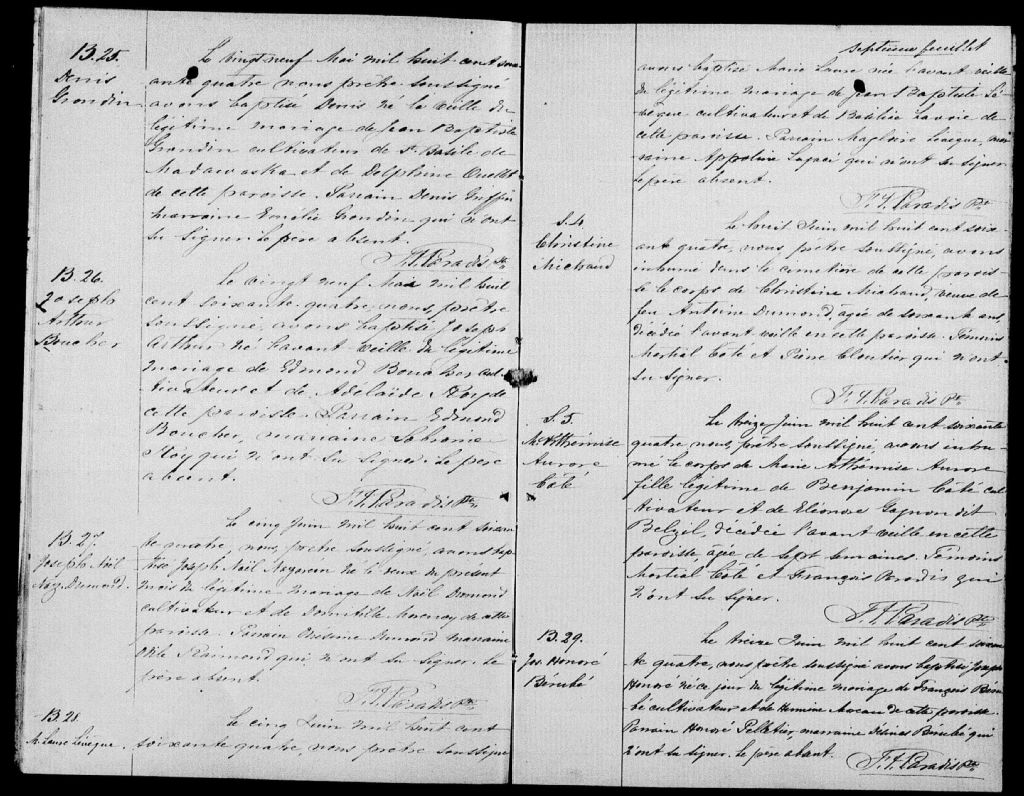 B.25.
Denis
Grondin
Le vingt neuf Mai mil huit cent soix-
ante quatre nous prêtre soussigné
avons baptisé Denis né la veille du
légitime mariage de Jean Baptiste
Grondin cultivateur de St. Basile de
Madawaska et de Delphine Ouellet
de cette paroisse. Parrain Denis
marraine Emélie Grondin qui n'ont
su signer. Le père absent.
F. T. Paradis Ptr.
B.26.
Joseph
Arthur
Boucher
Le vingt neuf Mai mil huit
cent soixante-quatre, nous, prêtre
soussigné, avons baptisé Joseph
Arthur né l'avant veille du légitime
mariage de Edmond Boucher cul-
tivateur et de Adélaïde Roy de
cette paroisse. Parrain Edmond
Boucher, marraine
Roy qui n'ont su signer. Le père
absent.
F. T. Paradis Ptr.
B.27
Joseph Noël
Naz. Dumond.
Le cinq Juin mil huit cent soixan-
te quatre, nous, prêtre soussigné, avons bap-
tisé Joseph Noël né le deux du présent
mois du légitime mariage de Noël Dumond
cultivateur et de Domitille de cette
paroisse. Parrain Onésime Dumond marraine
Raimond qui n'ont su signer. Le
père absent.
F. T. Paradis Ptr.
B.28.
M. Laure Lévêque.
Le cinq Juin mil huit cent
soixante quatre, nous prêtre soussigné
septième feuillet
avons baptisé Marie Laure née l'avant veille
du légitime mariage de Jean Baptiste Lé-
vêque cultivateur et de Basilice Lavoie de
cette paroisse. Parrain Magloire Lévêque, mar-
raine Appoline qui n'ont su signer
le père absent.
F. T. Paradis Ptr.
S. 4
Christine
Michaud
Le huit Juin mil huit cent soix-
ante quatre, nous, prêtre soussigné, avons
inhumé dans le cimetière de cette parois-
se le corps de Christine Michaud, veuve de
feu Antoine Dumond, âgée de soixante ans
décédée l'avant veille en cette paroisse. Témoins
Martial Coté et Pierre Cloutier qui n'ont
su signer.
F. T. Paradis Ptr.
S. 5.
M. Athémise
Aurore
Côté
Le treize Juin mil huit cent soixante
quatre nous, prêtre soussigné, avons inhu-
mé le corps de Marie Athémise Aurore
fille légitime de Benjamin Côté cul-
tivateur et de Eléonore Gagnon dit
Belzil, décédée l'avant veille en cette
paroisse, âgée de sept semaines. Témoins
Martial Coté et François Paradis qui
n'ont su signer.
F. T. Paradis Ptr.
B.29.
Jos. Honoré
Bérubé
Le treize Juin mil huit cent soixan-
te quatre, nous prêtre soussigné avons baptisé Joseph
Honoré né ce jour du légitime mariage de François Béru-
bé cultivateur et de de cette paroisse.
Parrain Honoré Pelletier, marraine Bérubé qui
n'ont su signer. Le père absent.
F. T. Paradis Ptr.